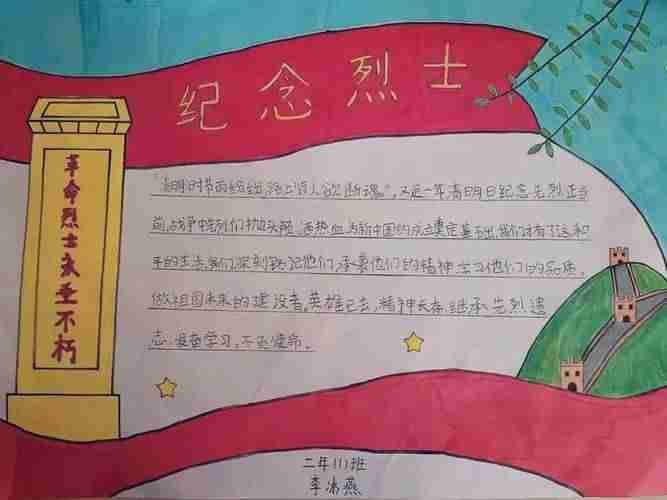 纪念烈士
革命烈士永垂不朽
"清明时节雨纷纷,路上行人欲断魂",又是一年清明日纪念先烈正当
前,战争中先烈们抛头颅,洒热血,为新中国的成立奠定基础,我们才有了这和
平的生活,我们深刻铭记他们,承袭他们的精神,学习他们的品质,
做祖国未来的建设者,英雄已去,精神长存,继承先烈遗
志,发奋学习,不忘使命。
二年(1)班
李沛燕